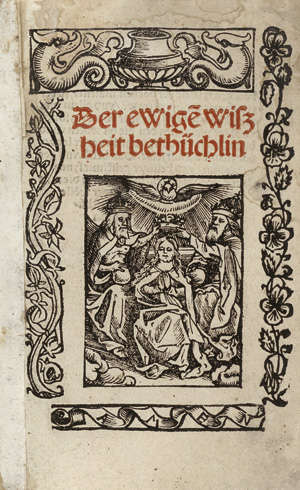 Der ewigẽ wiſz
heit bethüchlin